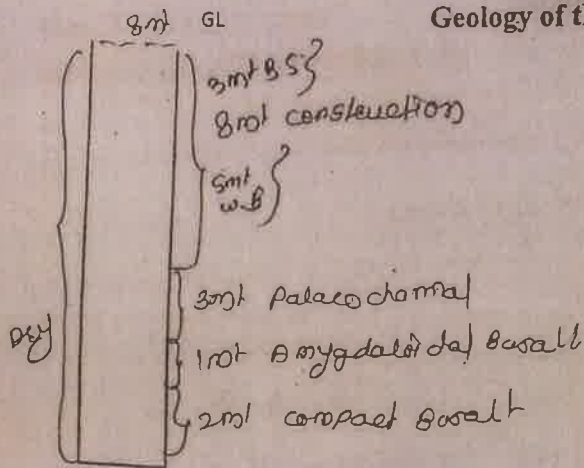 8mt GL
Geology of t
3mt B S
8mt construction
5mt
W.B
3mt Palaeochannal
Dry
1mt Amygdaloidal Basalt
2mt compact Basalt